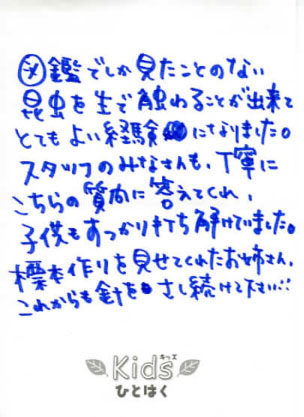 ㋱鑑でしか見たことのない
昆虫を生で触わることが出来て
とてもよい経験になりました。
スタッフのみなさんも、丁寧に
こちらの質問に答えてくれ、
子供もすっかり打ち解けていました。
標本作りを見せてくれたお姉さん、
これからも針をさし続けて下さい!!
キッズ
Kids
ひとはく